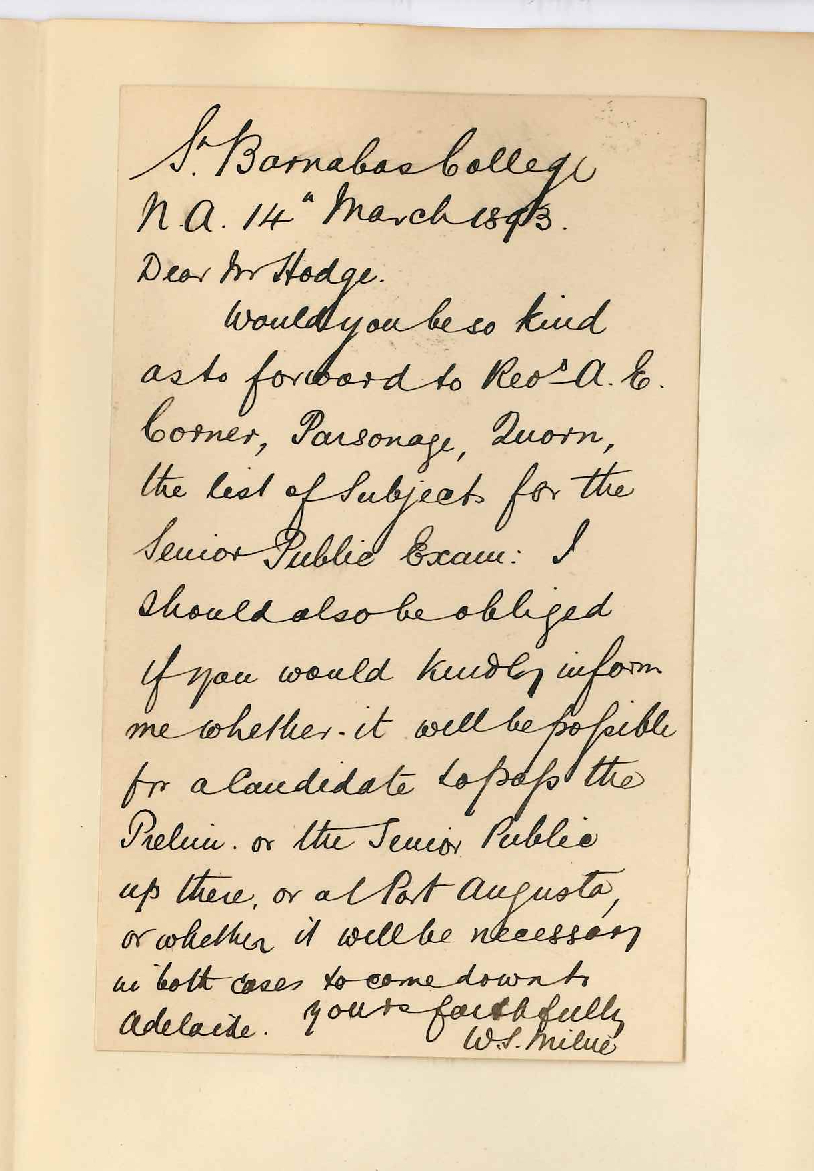 St. Barnabas College
N.A. 14" March 1893.
Dear Mr Hodge.
Would you be so kind
as to forward to Revd. A. E.
Corner, Parsonage, Quorn,
the list of Subjects for the
Senior Public Exam: I
should also be obliged
if you would kindly inform
me whether it will be possible
for a Candidate to pass the
Prelim. or the Senior Public
up there, or at Port Augusta,
or whether it will be necessary
in both cases to come down to
Adelaide. Yours faithfully
W.S. Milne